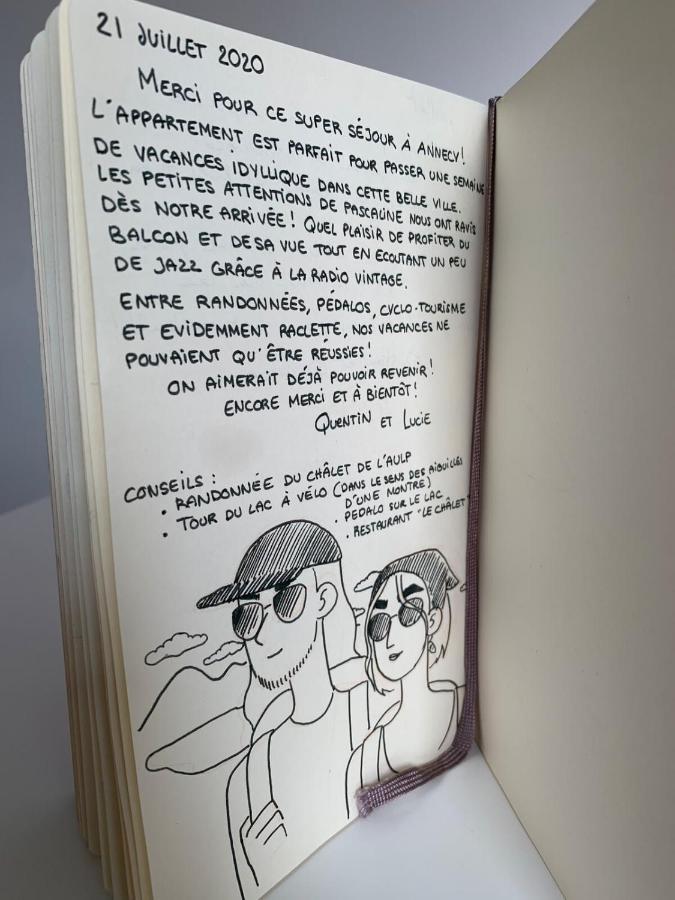 21 JUILLET 2020
MERCI POUR CE SUPER SÉJOUR À ANNECY!
L'APPARTEMENT EST PARFAIT POUR PASSER UNE SEMAINE
DE VACANCES IDYLLIQUE DANS CETTE BELLE VILLE.
LES PETITES ATTENTIONS DE PASCALINE NOUS ONT RAVIS
DÈS NOTRE ARRIVÉE! QUEL PLAISIR DE PROFITER DU
BALCON ET DE SA VUE TOUT EN ECOUTANT UN PEU
DE JAZZ GRÂCE À LA RADIO VINTAGE.
ENTRE RANDONNÉES, PÉDALOS, CYCLO-TOURISME
ET EVIDEMMENT RACLETTE, NOS VACANCES NE
POUVAIENT QU'ÊTRE RÉUSSIES!
ON AIMERAIT DÉJÀ POUVOIR REVENIR!
ENCORE MERCI ET À BIENTÔT!
QUENTIN ET LUCIE
CONSEILS :
• RANDONNÉE DU CHÂLET DE L'AULP
• TOUR DU LAC À VÉLO (DANS LE SENS DES AIGUILLES
D'UNE MONTRE)
• PEDALO SUR LE LAC
• RESTAURANT "LE CHÂLET"